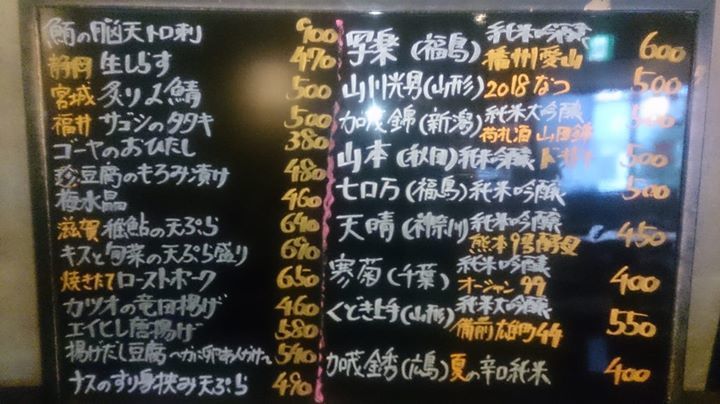 鮪の脳天トロ刺 900
静岡 生しらす 470
宮城 炙り〆鯖 500
福井 サゴシのタタキ 500
ゴーヤのおひたし 380
豆腐のもろみ漬け 480
梅水晶 460
滋賀 稚鮎の天ぷら 640
キスと旬菜の天ぷら盛り 690
焼きたてローストポーク 650
カツオの竜田揚げ 460
エイヒレ唐揚げ 580
揚げだし豆腐 590
ナスのすり身挟み天ぷら 490
写楽(福島) 純米吟醸 播州愛山 600
山川光男(山形) 2018なつ 500
加茂錦(新潟) 純米大吟醸 荷札酒 山田錦
山本(秋田) 純米吟醸 500
七ロ万(福島) 純米吟醸 500
天晴(神奈川) 純米吟醸 熊本9号酵母 450
寒菊(千葉) 純米吟醸 オーシャン99 400
くどき上手(山形) 純米大吟醸 備前雄町44 550
加茂金秀(広島) 夏の辛口純米 400